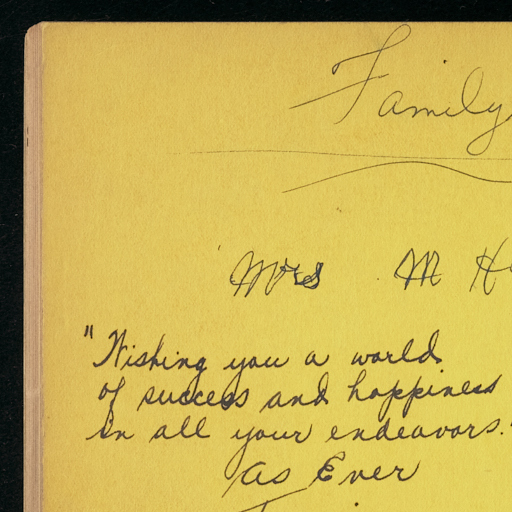 Family
Mrs M H
"Wishing you a world
of success and happiness
in all your endeavors."
As Ever